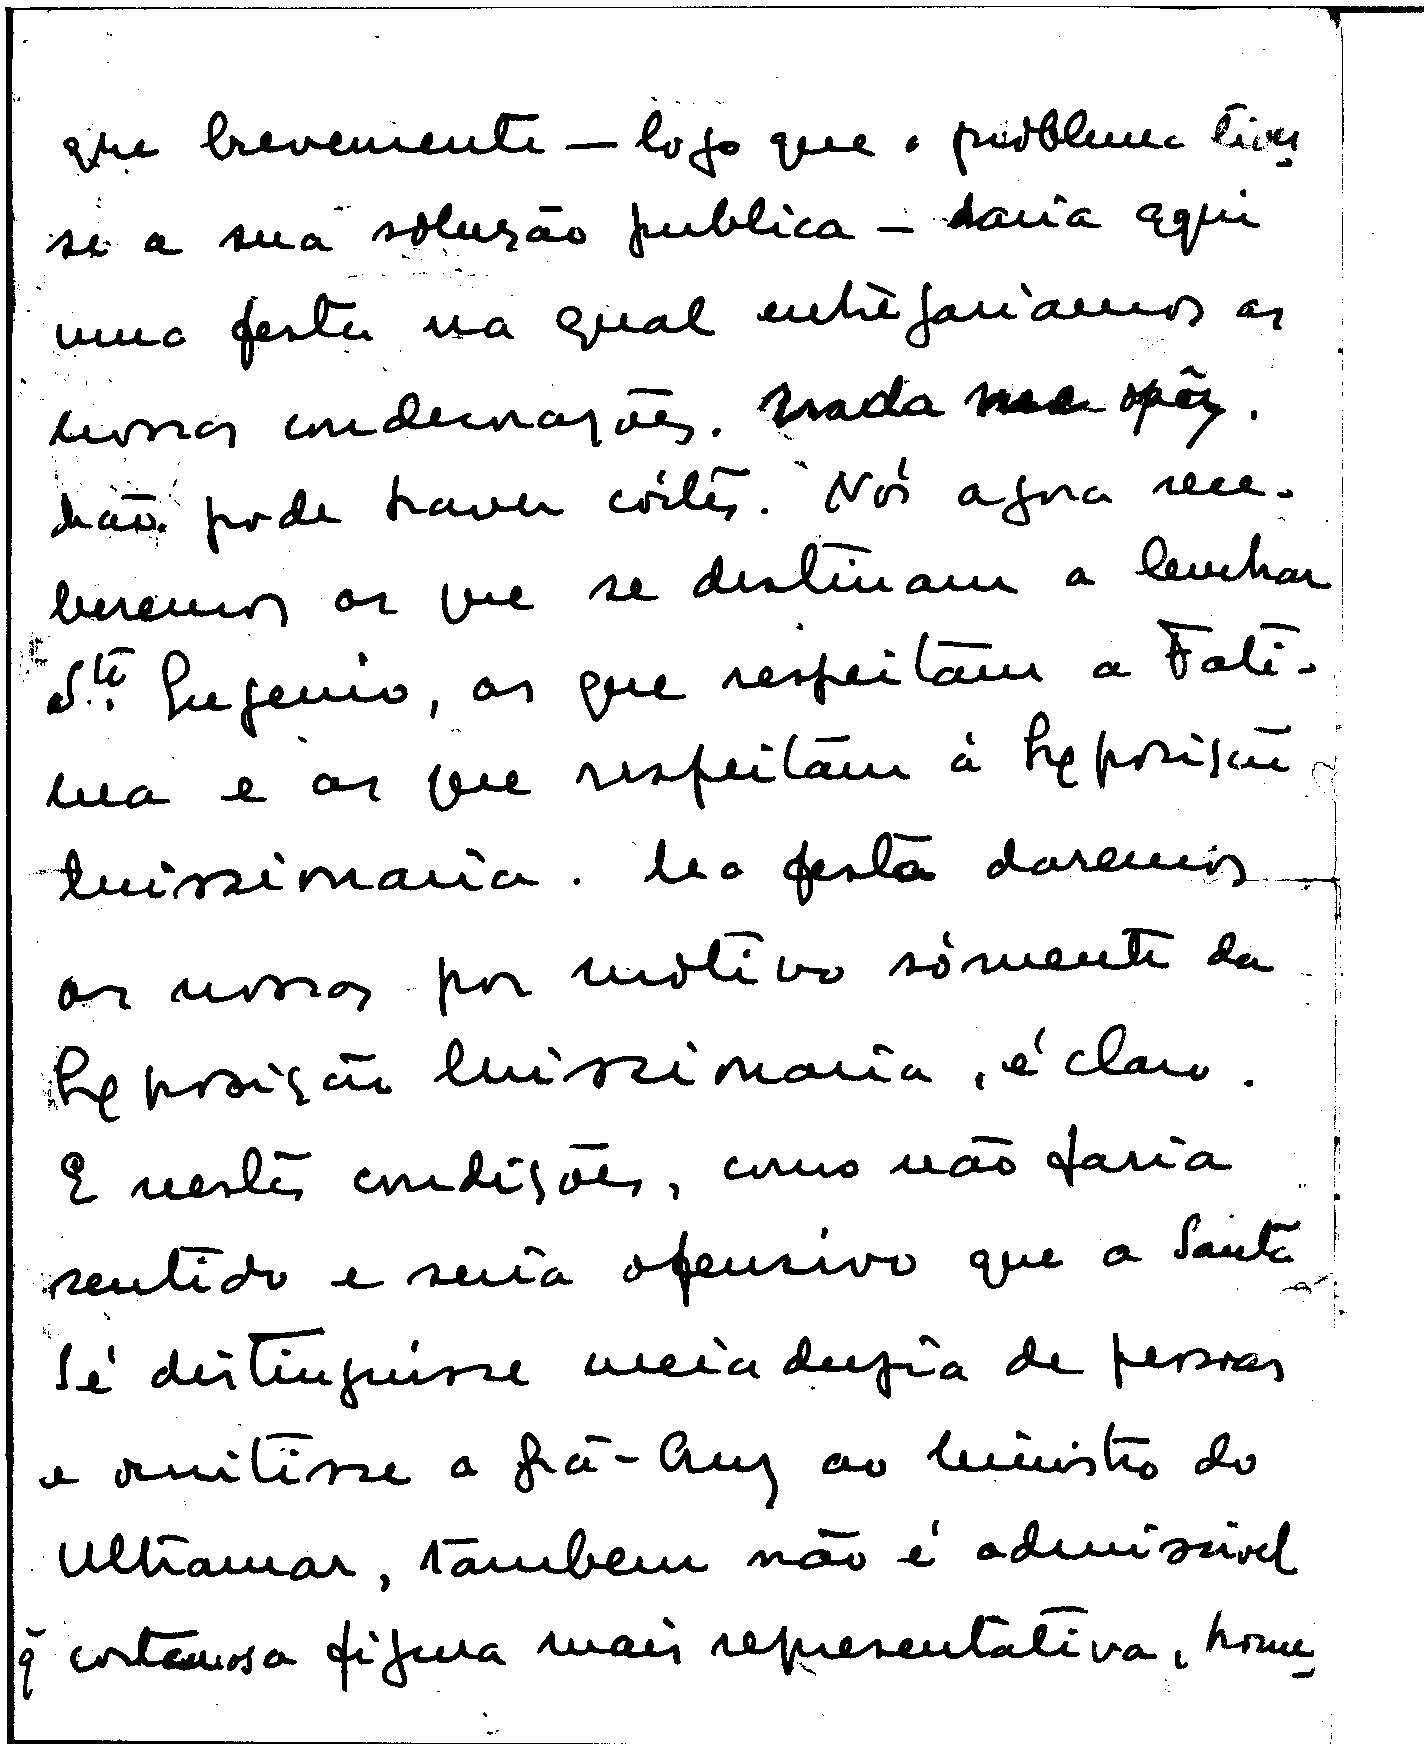 que brevemente — logo que o problema tives
se a sua solução publica — daria aqui
uma festa na qual entregariamos as
nossas condecorações. Nada me opôs.
Não pode haver côrtes. Nós agora rece-
beremos as que se destinam a lembrar
Sto. Eugenio, as que respeitam a Fati-
ma e as que respeitam à Exposição
Missionaria. Na festa daremos
as nossas por motivo sómente da
Exposição Missionaria, é claro.
E nestas condições, como não faria
sentido e seria ofensivo que a Santa
Sé distinguisse meia duzia de pessoas
e omitisse a Grã-Cruz ao Ministro do
Ultramar, tambem não é admissivel
q̃ cortemos a figura mais representativa, home